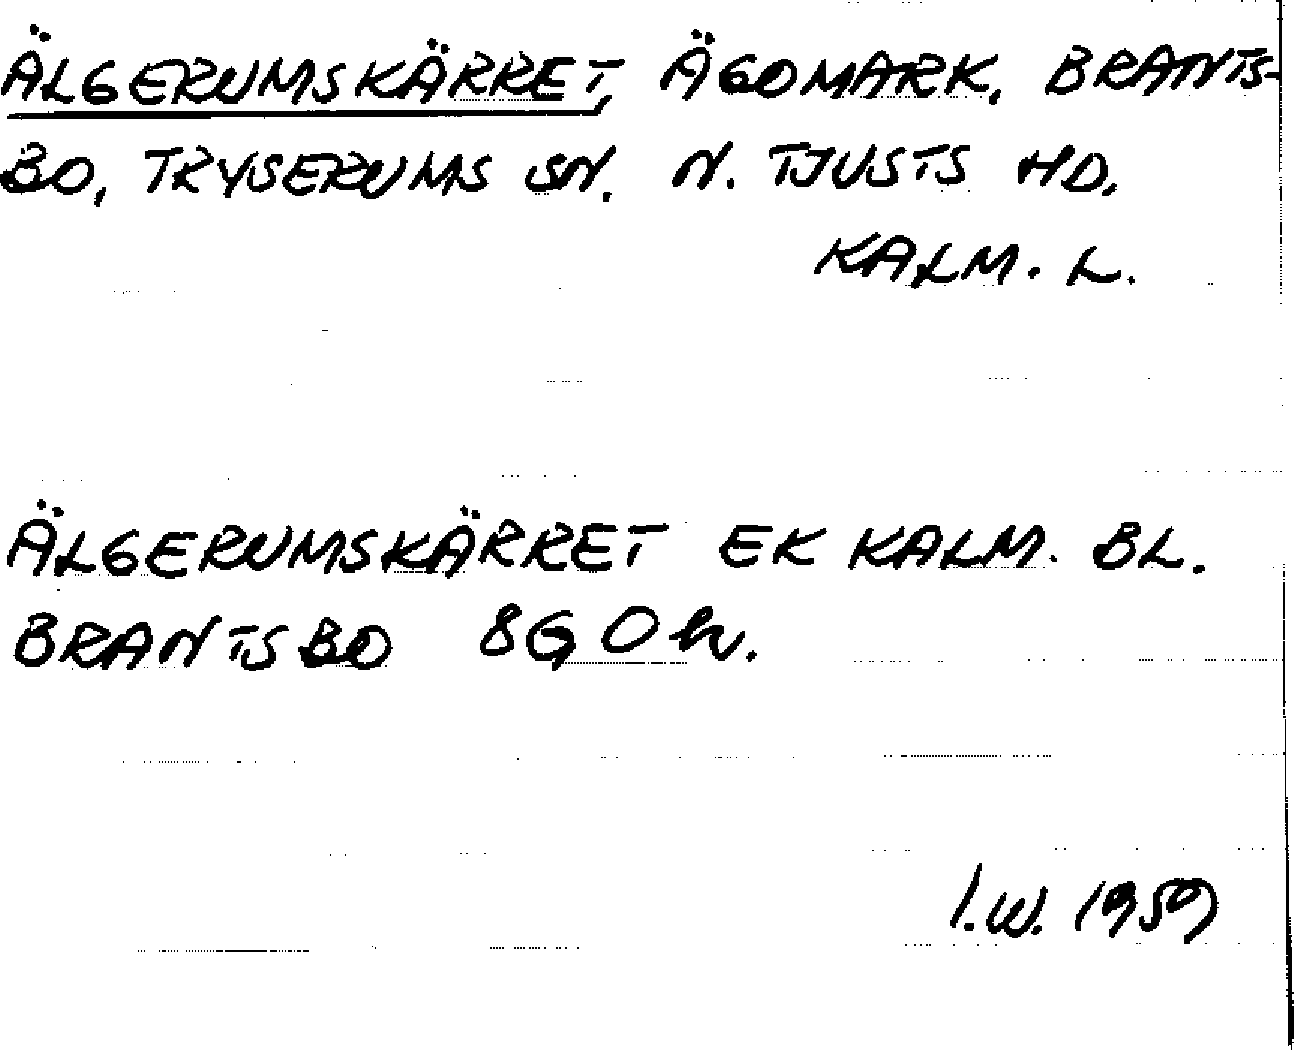 ÄLGERUMSKÄRRET, ÄGOMARK, BRANTS-
BO, TRYSERUMS SN. N. TJUSTS HD.
KALM. L.
ÄLGERUMSKÄRRET EK KALM. BL.
BRANTSBO 8G 0h.
I.W. 1959